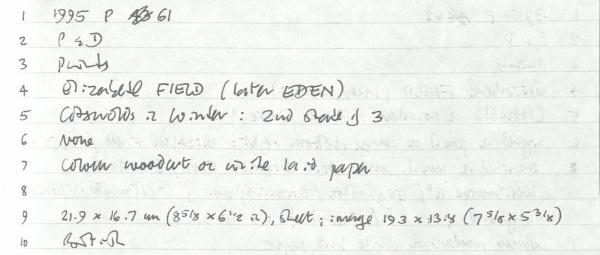 1 1995 P 61
2 P & D
3 Prints
4 Elizabeth FIELD (later EDEN)
5 Cotswolds in Winter: 2nd State of 3
6 None
7 Colour woodcut on white laid paper
8
9 21.9 x 16.7 cm (8 5/8 x 6 1/2 in), sheet; image 19.3 x 13.8 (7 5/8 x 5 3/8)
10 British